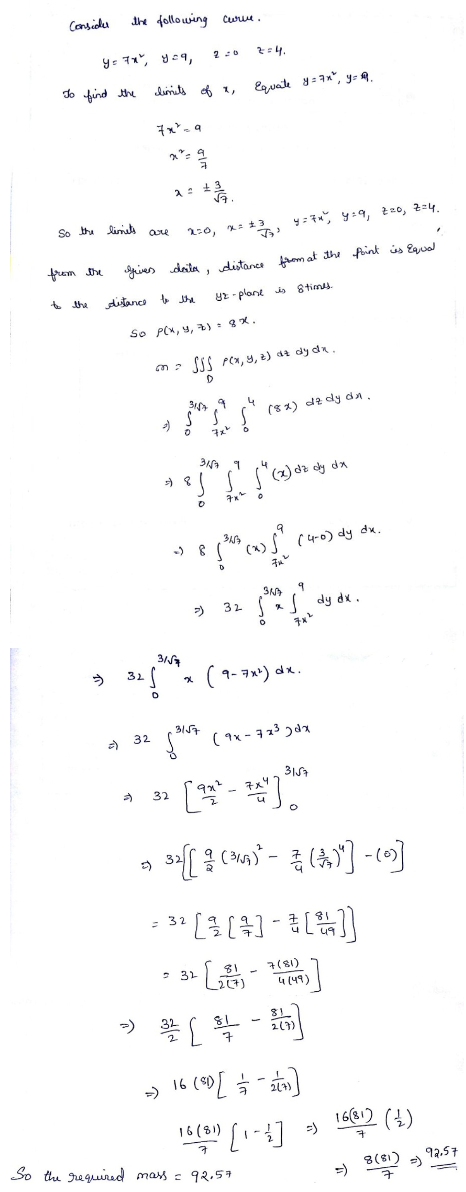 Consider the following curve.
y = 7x², y = 9, z = 0 z = 4.
To find the limits of x, Equate y = 7x², y = 9.
7x² = 9
x² = 9/7
x = ± 3/√7.
So the limits are x=0, x = ±3/√7, y = 7x², y = 9, z = 0, z = 4.
from the given data, distance from at the point is Equal
to the distance to the yz-plane is 8 times.
So ρ(x, y, z) = 8x.
m = ∫∫∫_D ρ(x, y, z) dz dy dx.
⇒ ∫_0^{3/√7} ∫_{7x²}^9 ∫_0^4 (8x) dz dy dx.
⇒ 8 ∫_0^{3/√7} ∫_{7x²}^9 ∫_0^4 (x) dz dy dx
⇒ 8 ∫_0^{3/√7} (x) ∫_{7x²}^9 (4-0) dy dx.
⇒ 32 ∫_0^{3/√7} x ∫_{7x²}^9 dy dx.
⇒ 32 ∫_0^{3/√7} x (9 - 7x²) dx.
⇒ 32 ∫_0^{3/√7} (9x - 7x³) dx
⇒ 32 [9x²/2 - 7x⁴/4]_0^{3/√7}
⇒ 32 [[9/2 (3/√7)² - 7/4 (3/√7)⁴] - (0)]
= 32 [9/2 [9/7] - 7/4 [81/49]]
= 32 [81/2(7) - 7(81)/4(49)]
⇒ 32/2 [81/7 - 81/2(7)]
⇒ 16 (81) [1/7 - 1/2(7)]
16(81)/7 [1 - 1/2] ⇒ 16(81)/7 (1/2)
⇒ 8(81)/7 ⇒ 92.57
So the required mass = 92.57